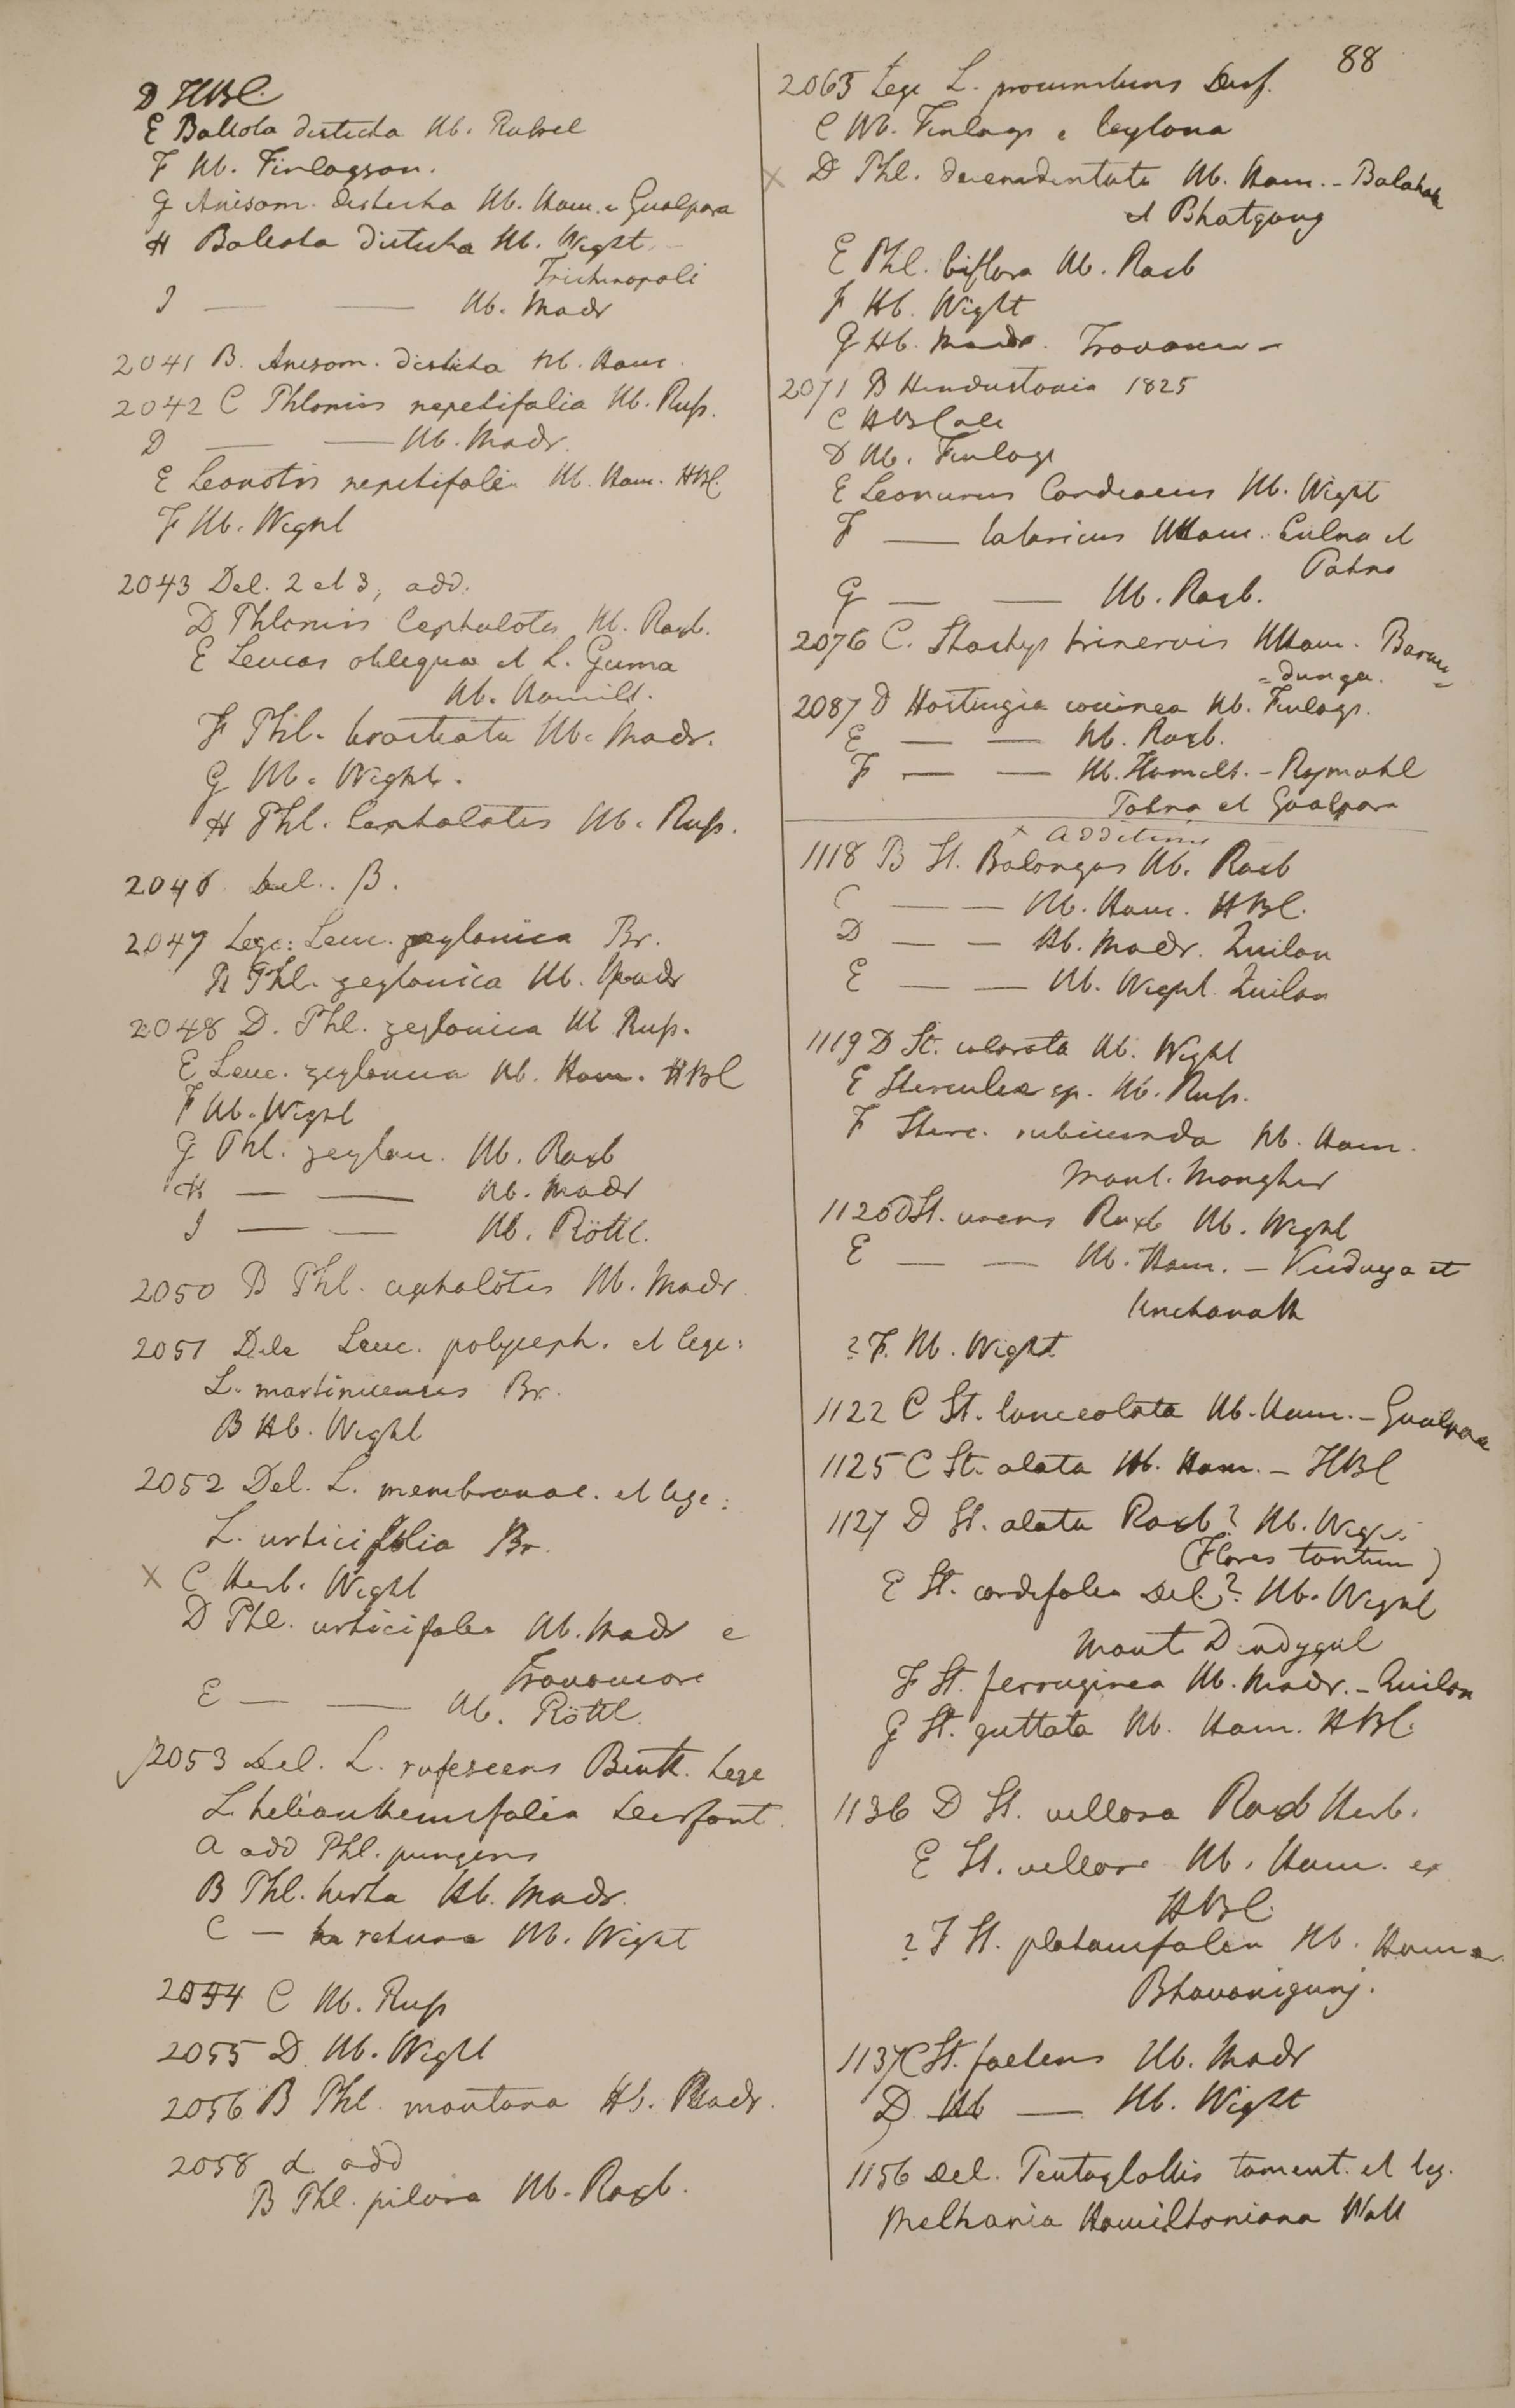 88
D HBC
E Ballota disticha Hb. Russel
F Hb. Finlayson.
G Anisom. disticha Hb. Ham. e Gualpara
H Ballota disticha Hb. Wight
Trichinopoli
I — — Hb. Madr
2041 B. Anisom. disticha Hb. Ham.
2042 C Phlomis nepetifolia Hb. Russ.
D — — Hb. Madr.
E Leonotis nepetifolia Hb. Ham. HBC.
F Hb. Wight
2043 Del. 2 et 3, add.
D Phlomis Cephalotes Hb. Roxb.
E Leucas obliqua et L. Guma
Hb. Hamilt.
F Phl. bracteata Hb. Madr.
G Hb. Wight.
H Phl. Cephalotes Hb. Russ.
2046 Del. B.
2047 Lege: Leuc. zeylanica Br.
B Phl. zeylanica Hb. Madr
2048 D. Phl. zeylanica Hb Russ.
E Leuc. zeylanica Hb. Ham. HBC
F Hb. Wight
G Phl. zeylan. Hb. Roxb
H — — Hb. Madr
I — — Hb. Röttl.
2050 B Phl. cephalotes Hb. Madr.
2051 Dele Leuc. polyceph. et lege:
L. martinicensis Br.
B Hb. Wight
2052 Del. L. membranac. et lege:
L. urticifolia Br.
X C Herb. Wight
D Phl. urticifolia Hb. Madr e
Travancore
E — — Hb. Röttl.
2053 Del. L. rufescens Benth. Lege
L. helianthemifolia Desfont.
A add Phl. pungens
B Phl. hirta Hb. Madr.
C — retusa Hb. Wight
2054 C Hb. Russ
2055 D Hb. Wight
2056 B Phl. montana Hb. Madr.
2058 α add
B Phl. pilosa Hb. Roxb.
2065 Lege L. procumbens Desf.
C Hb. Finlays e Ceylona
X D Phl. decemdentata Hb. Ham. -
et Bhatgong
E Phl. biflora Hb. Roxb
F Hb. Wight
G Hb. Madr. Travancor
2071 B Hindustania 1825
C HBCalc
D Hb. Finlays
E Leonurus Cardiacus Hb. Wight
F — tataricus HHam. Culna et
Patna
G — — Hb. Roxb.
2076 C. Stachys trinervis HHam. Barun=
=dunga.
2087 D Hastingia coccinea Hb. Finlays.
E — — Hb. Roxb.
F — — Hb. Hamilt. - Rajmahl
Patna et Goalpara
x Additions
1118 B St. Balangas Hb. Roxb
C — — Hb. Ham. HBC.
D — — Hb. Madr. Quilon
E — — Hb. Wight. Quilon
1119 D St. colorata Hb. Wight
E Sterculea sp. Hb. Russ.
F Sterc. rubicunda Hb. Ham.
Mont. Mongher
1120 D St. urens Roxb Hb. Wight
E — — Hb. Ham. - et
? F. Hb. Wight
1122 C St. lanceolata Hb. Ham. - Goalpara
1125 C St. alata Hb. Ham. - HBC
1127 D St. alata Roxb? Hb. Wight
(Flores tantum)
E St. cordifolia Del.? Hb. Wight
Mont. Dindygul
F St. ferruginea Hb. Madr. - Quilon
G St. guttata Hb. Ham. HBC.
1136 D St. villosa Roxb Herb.
E St. villosa Hb. Ham. ex
HBC.
? F St. platanifolia Hb. Ham. e
Bhavanigunj.
1137 C St. foetens Hb. Madr
D Hb — Hb. Wight
1156 Del. Pentaglottis toment. et leg.
Melhania Hamiltoniana Wall